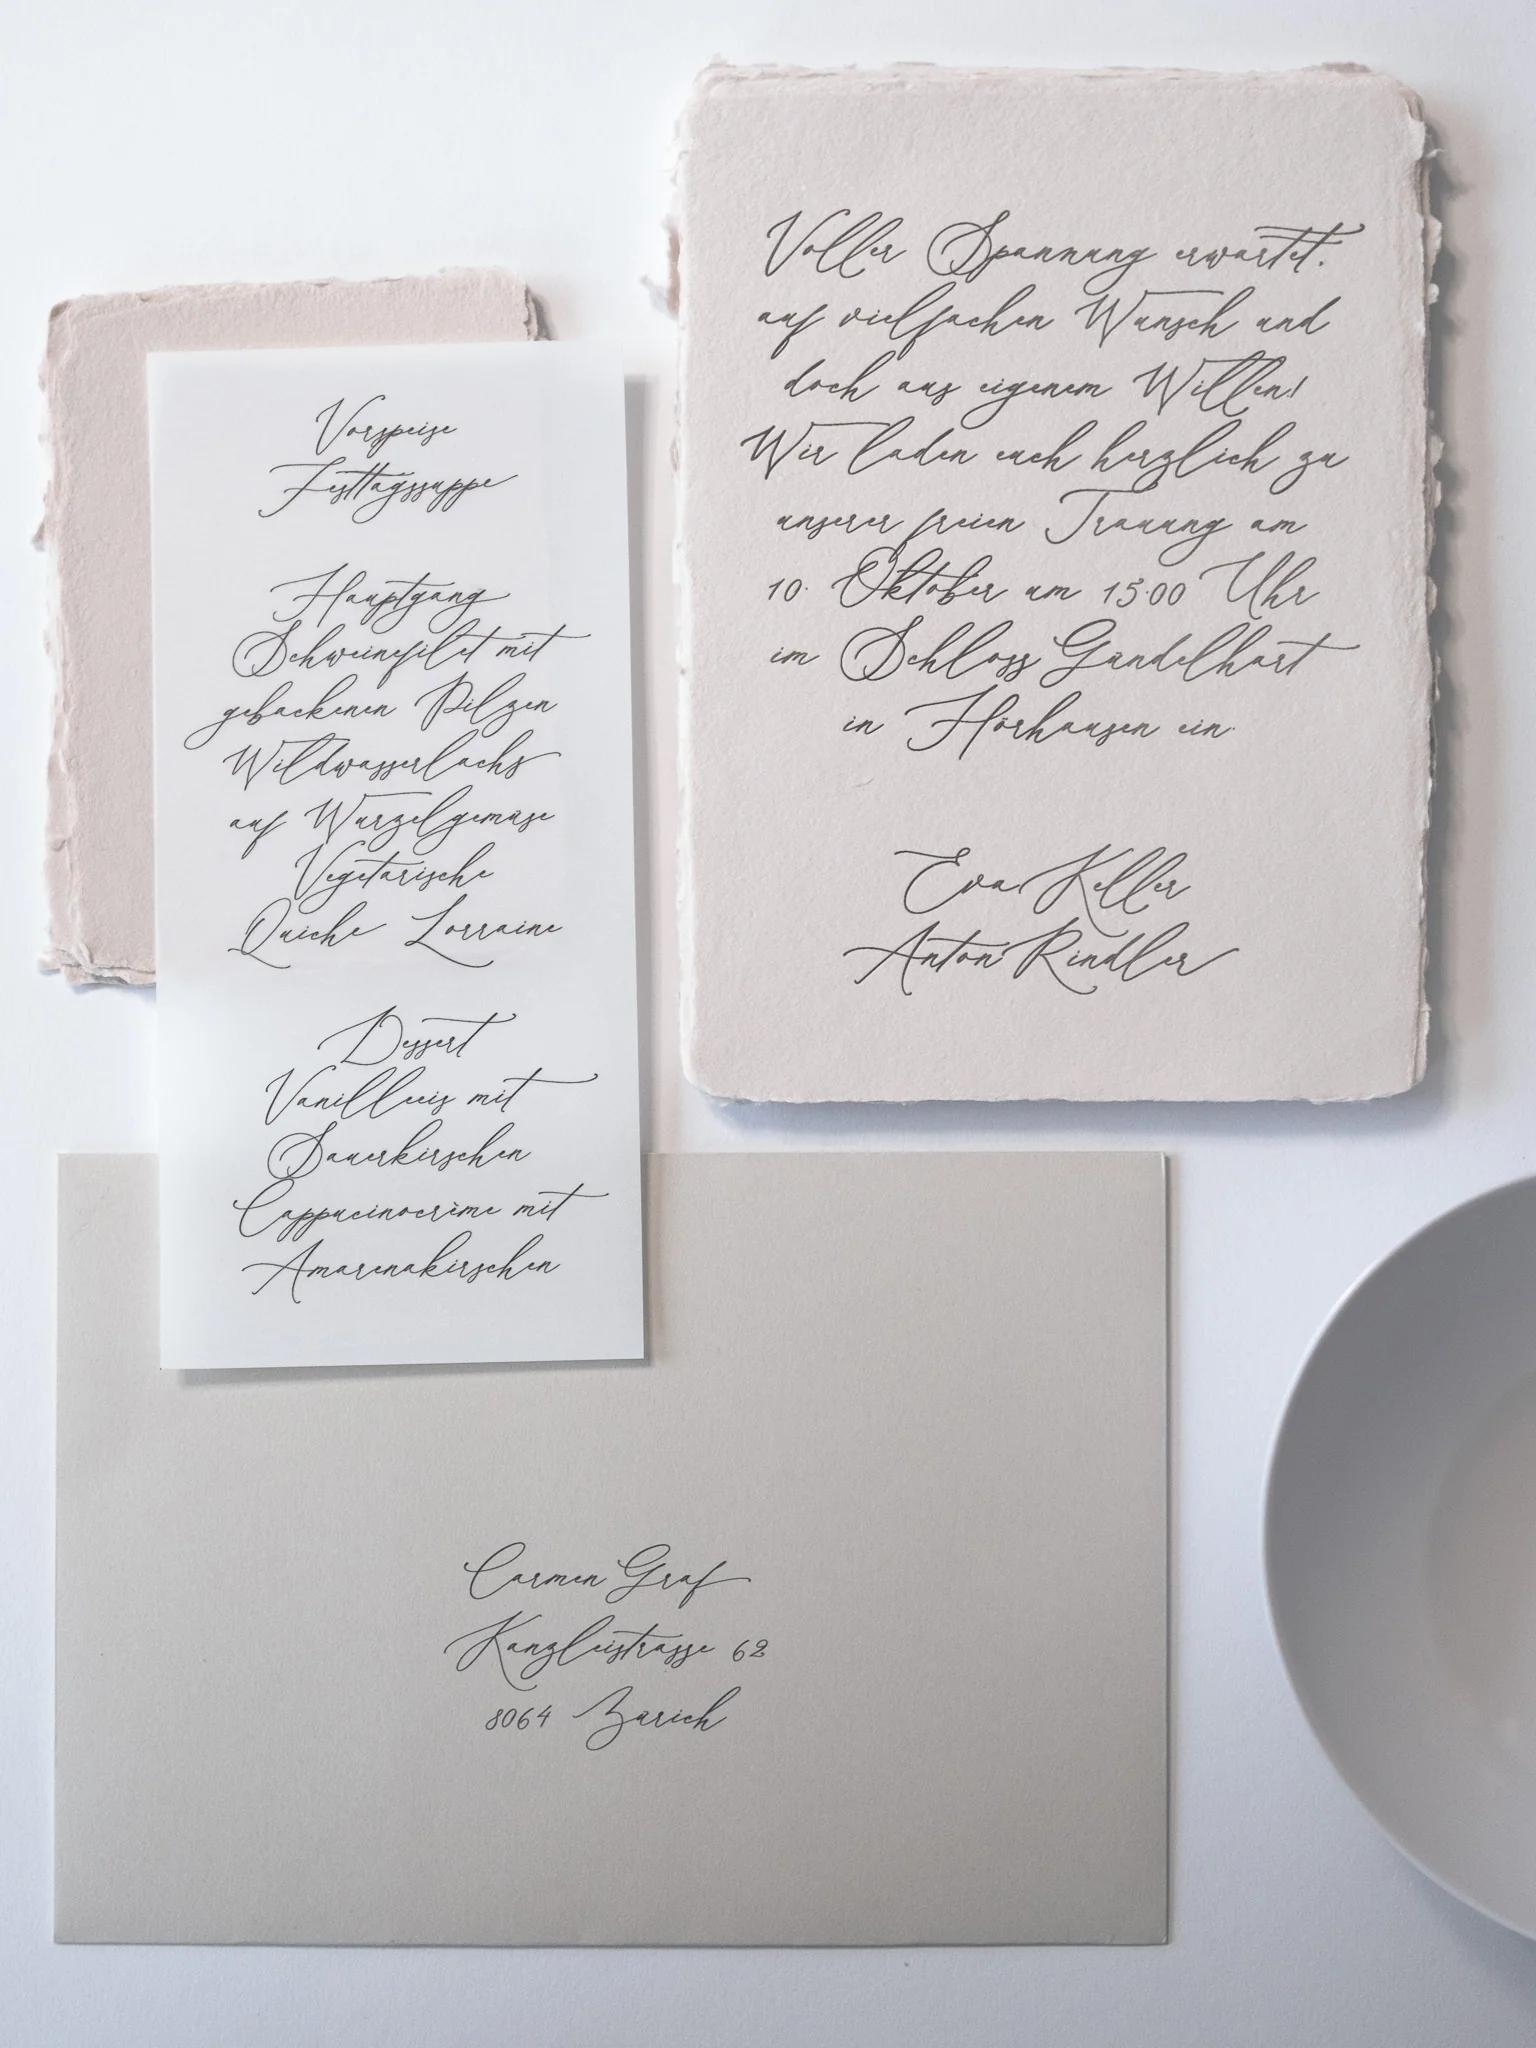 Vorspeise
Festtagssuppe
Hauptgang
Schweinefilet mit
gebackenen Pilzen
Wildwasserlachs
auf Wurzelgemüse
Vegetarische
Quiche Lorraine
Dessert
Vanilleeis mit
Sauerkirschen
Cappucinocrème mit
Amarenakirschen
Voller Spannung erwartet,
auf vielfachen Wunsch und
doch aus eigenem Willen!
Wir laden euch herzlich zu
unserer freien Trauung am
10. Oktober um 15.00 Uhr
im Schloss Gündelhart
in Hörhausen ein.
Eva Keller
Anton Rindler
Carmen Graf
Kanzleistrasse 62
8064 Zürich